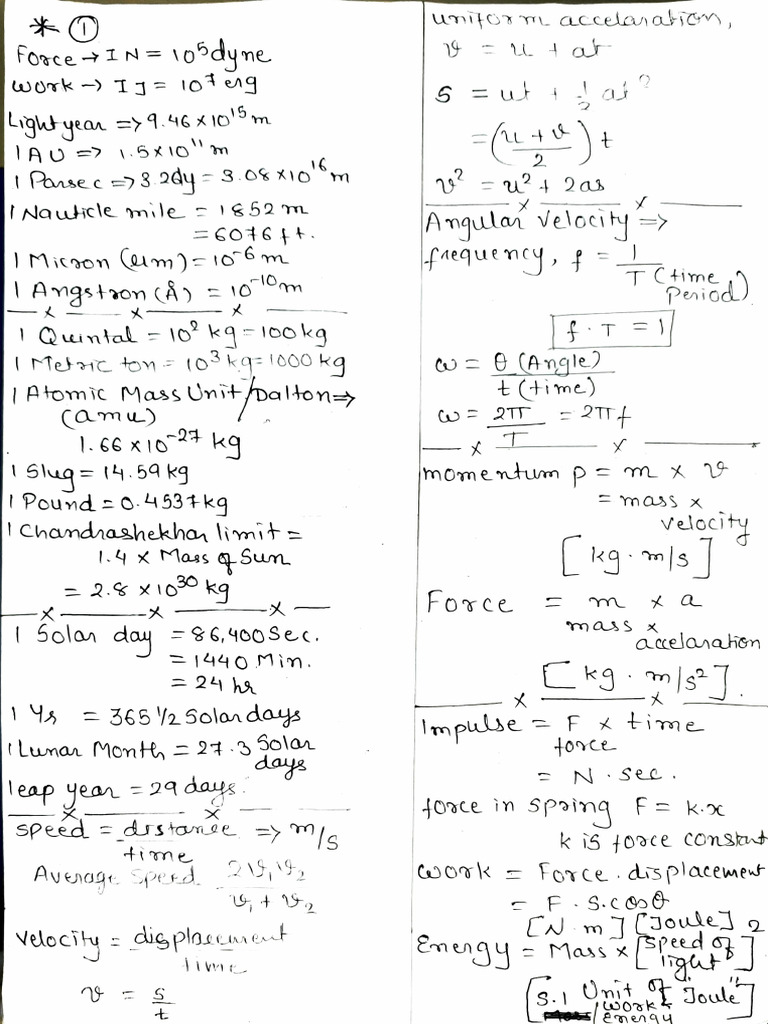 * ①
Force → 1N = 10⁵ dyne
Work → 1J = 10⁷ erg
Light year => 9.46 × 10¹⁵ m
1 AU => 1.5 × 10¹¹ m
1 Parsec => 3.2dy = 3.08 × 10¹⁶ m
1 Nauticle mile = 1852 m
= 6076 ft.
1 Micron (um) = 10⁻⁶ m
1 Angstron (Å) = 10⁻¹⁰ m
— x — x — x —
1 Quintal = 10² kg = 100 kg
1 Metric ton = 10³ kg = 1000 kg
1 Atomic Mass Unit/Dalton =>
(amu)
1.66 × 10⁻²⁷ kg
1 Slug = 14.59 kg
1 Pound = 0.4537 kg
1 Chandrashekhar limit =
1.4 × Mass of Sun
= 2.8 × 10³⁰ kg
— x — x — x —
1 Solar day = 86,400 Sec.
= 1440 Min.
= 24 hr
1 Yr = 365 1/2 Solar days
1 Lunar Month = 27.3 Solar
days
leap year = 29 days.
— x — x —
Speed = distance => m/s
time
Average Speed 2v₁v₂
v₁ + v₂
Velocity = displacement
time
v = s
t
uniform accelaration,
v = u + at
s = ut + 1/2 at²
= (u + v / 2) t
v² = u² + 2as
— x — x —
Angular Velocity =>
frequency, f = 1
T (time
period)
f · T = 1
ω = θ (Angle)
t (time)
ω = 2π/T = 2πf
— x — x —
momentum p = m × v
= mass ×
velocity
[kg · m/s]
Force = m × a
mass ×
accelaration
[kg · m/s²].
— x — x —
Impulse = F × time
force
= N · sec.
force in spring F = k·x
k is force constant
Work = Force . displacement
= F · S. cos θ
[N · m] [Joule]
Energy = Mass × [Speed of
light]²
[S.I Unit of "Joule"]
/Work &
Energy